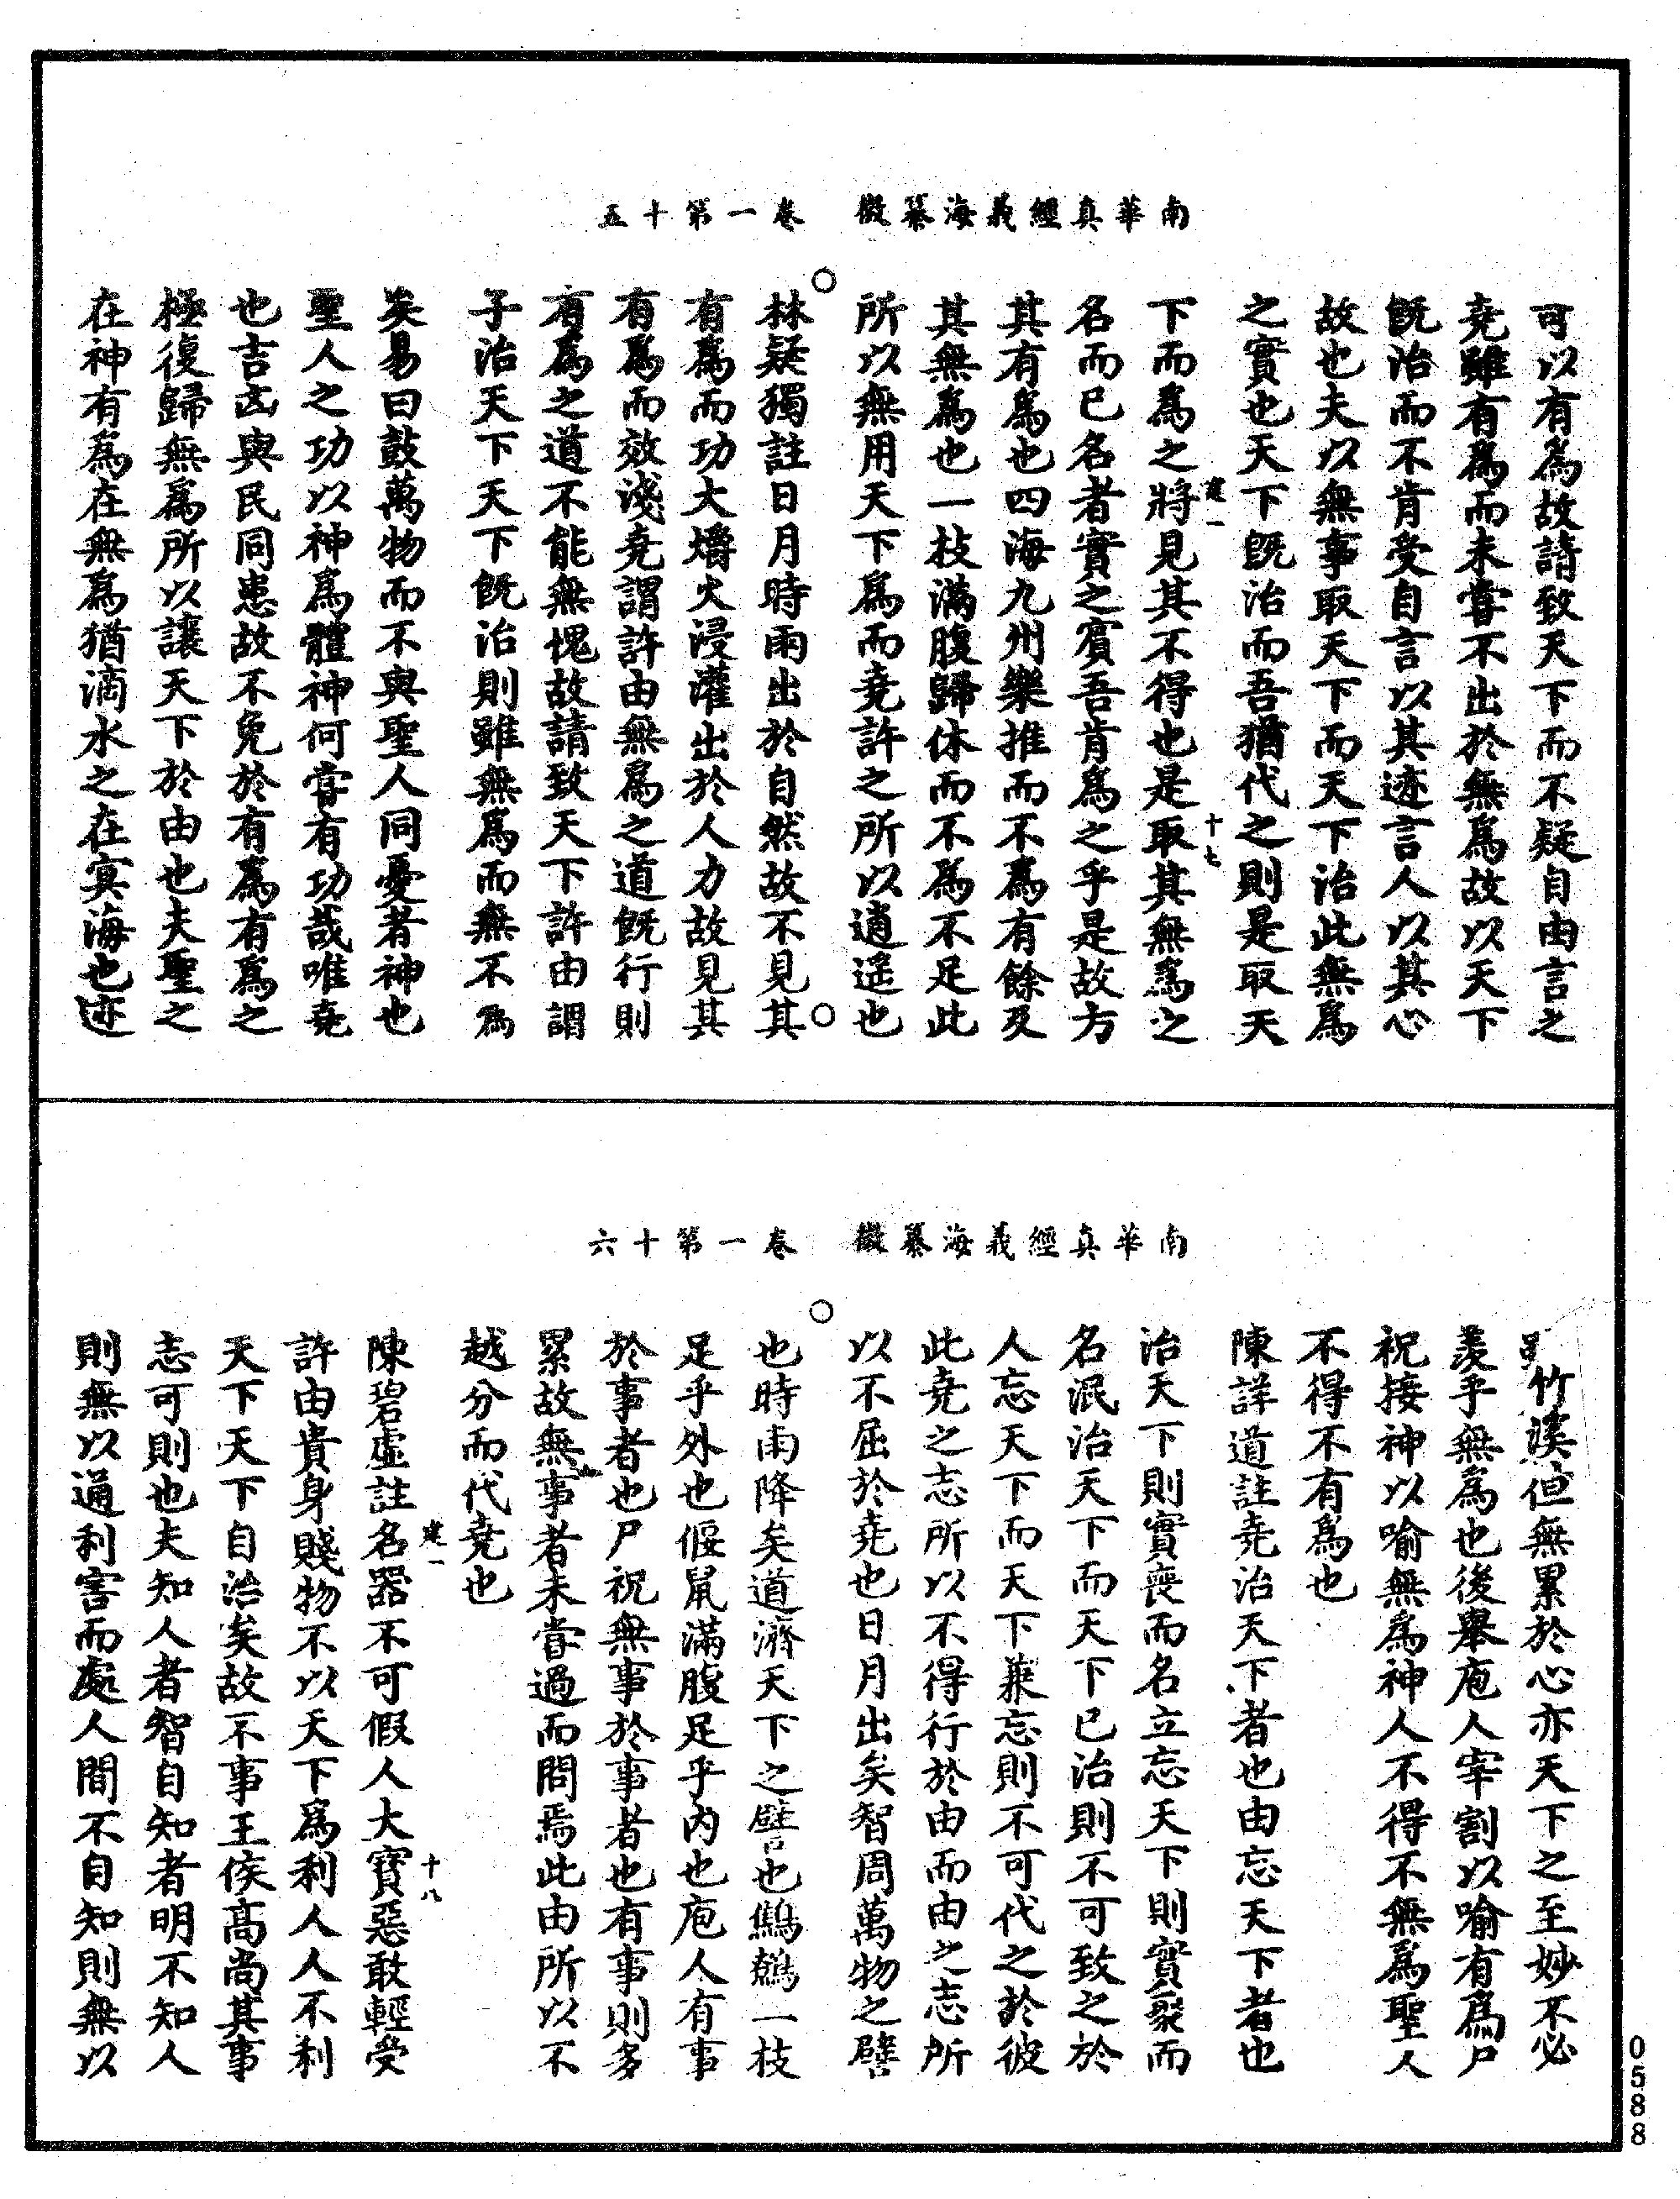 南華真經義海纂微　卷一第十五
可以有爲故請致天下而不疑自由言之
堯雖有爲而未嘗不出於無爲故以天下
旣治而不肯受自言以其迹言人以其心
故也夫以無事取天下而天下治此無爲
之實也天下旣治而吾猶代之則是取天
下而爲之將見其不得也是取其無爲之
建一
十七
名而已名者實之賓吾肯爲之乎是故方
其有爲也四海九州樂推而不爲有餘及
其無爲也一枝滿腹歸休而不爲不足此
所以無用天下爲而堯許之所以逍遙也
○
林疑獨註日月時雨出於自然故不見其
○
有爲而功大爝火浸灌出於人力故見其
有爲而效淺堯謂許由無爲之道旣行則
有爲之道不能無愧故請致天下許由謂
子治天下天下旣治則雖無爲而無不爲
矣易曰鼓萬物而不與聖人同憂者神也
聖人之功以神爲體神何嘗有功哉唯堯
也吉凶與民同患故不免於有爲有爲之
極復歸無爲所以讓天下於由也夫聖之
在神有爲在無爲猶滴水之在冥海也迹
南華真經義海纂微　卷一第十六
竹溪但無累於心亦天下之至妙不必
羨乎無爲也後舉庖人宰割以喻有爲尸
祝接神以喻無爲神人不得不無爲聖人
不得不有爲也
陳詳道註堯治天下者也由忘天下者也
治天下則實喪而名立忘天下則實聚而
名泯治天下而天下已治則不可致之於
人忘天下而天下兼忘則不可代之於彼
此堯之志所以不得行於由而由之志所
以不屈於堯也日月出矣智周萬物之譬
○
也時雨降矣道濟天下之譬也鷦鷯一枝
足乎外也偃鼠滿腹足乎內也庖人有事
於事者也尸祝無事於事者也有事則多
累故無事者未嘗過而問焉此由所以不
越分而代堯也
建一
十八
陳碧虛註名器不可假人大寶惡敢輕受
許由貴身賤物不以天下爲利人人不利
天下天下自治矣故不事王侯高尚其事
志可則也夫知人者智自知者明不知人
則無以通利害而處人間不自知則無以
0588